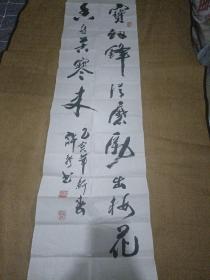 宝剑锋从磨励出梅花
香自苦寒来
乙亥年
书